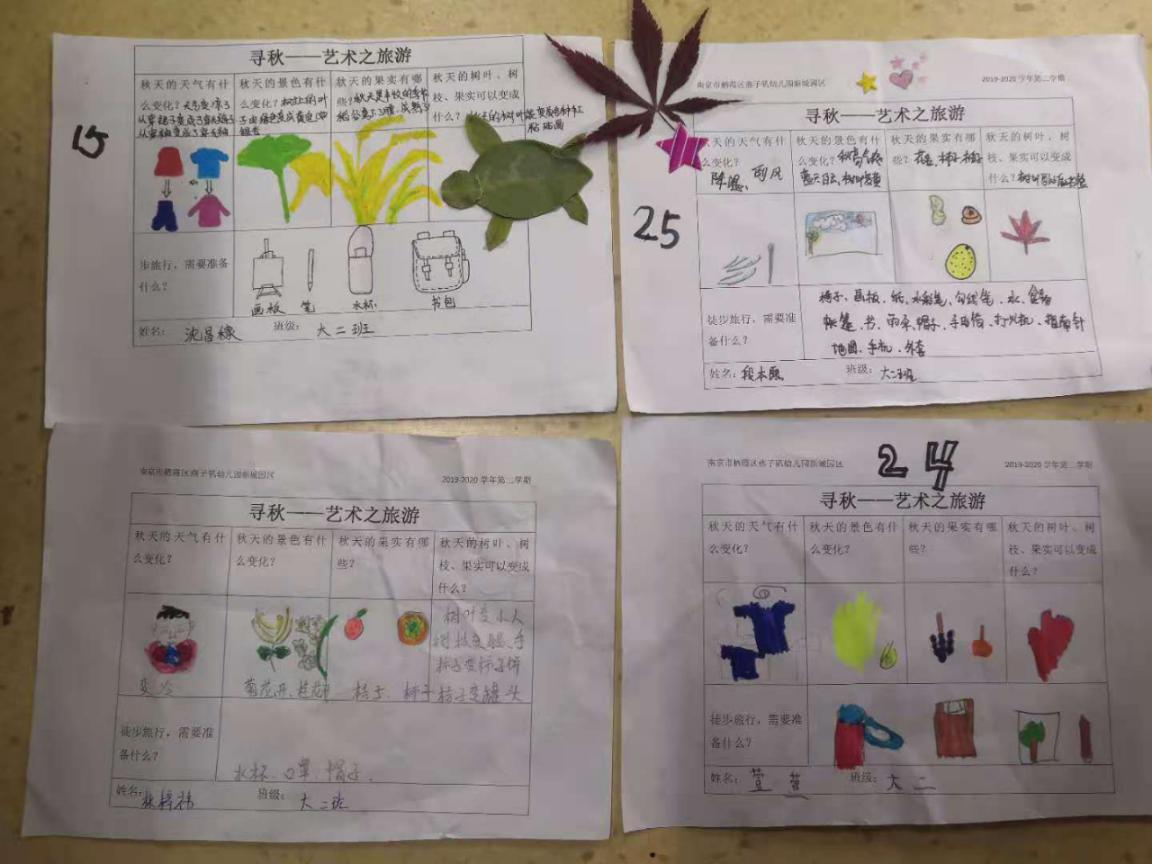 15
寻秋——艺术之旅游
秋天的天气有什
么变化？天气变凉了
从穿裙子变成了穿长裤子
从穿短袖变成了穿长袖
秋天的景色有什
么变化？树上的树叶
子由绿色变成黄色
秋天的果实有哪
些？秋天是丰收的季节
稻谷
秋天的树叶、树
枝、果实可以变成
什么？秋天的树叶能变成各种手工
粘贴画
步旅行，需要准备
什么？
画板 笔 水杯 书包
姓名：沈昌 班级：大二班
南京市栖霞区燕子矶幼儿园新城园区 2019-2020 学年第二学期
寻秋——艺术之旅游
25
天的天气有什
么变化？
降温、刮风
秋天的景色有什
么变化？秋高气爽
蓝天白云、树叶变黄
秋天的果实有哪
些？花生、柿子、柚子
秋天的树叶、树
枝、果实可以变成
什么？树叶
徒步旅行，需要准
备什么？
椅子、画板、纸、水彩笔、勾线笔、水、食物
帐篷、书、雨伞、帽子、手电筒、打火机、指南针
地图、手机、外套
姓名：段本 班级：大二班
南京市栖霞区燕子矶幼儿园新城园区 2019-2020 学年第二学期
寻秋——艺术之旅游
秋天的天气有什
么变化？
秋天的景色有什
么变化？
秋天的果实有哪
些？
秋天的树叶、树
枝、果实可以变成
什么？
树叶变小人
树枝变腿、手
柿子变柿子饼
桔子变罐头
变冷
菊花开、桂花
桔子、柿子
徒步旅行，需要准
备什么？
水杯、口罩、帽子、
姓名： 班级：大二班
南京市栖霞区燕子矶幼儿园新城园区 24 2019-2020 学年第二学期
寻秋——艺术之旅游
秋天的天气有什
么变化？
秋天的景色有什
么变化？
秋天的果实有哪
些？
秋天的树叶、树
枝、果实可以变成
什么？
徒步旅行，需要准
备什么？
姓名：萱萱 班级：大二